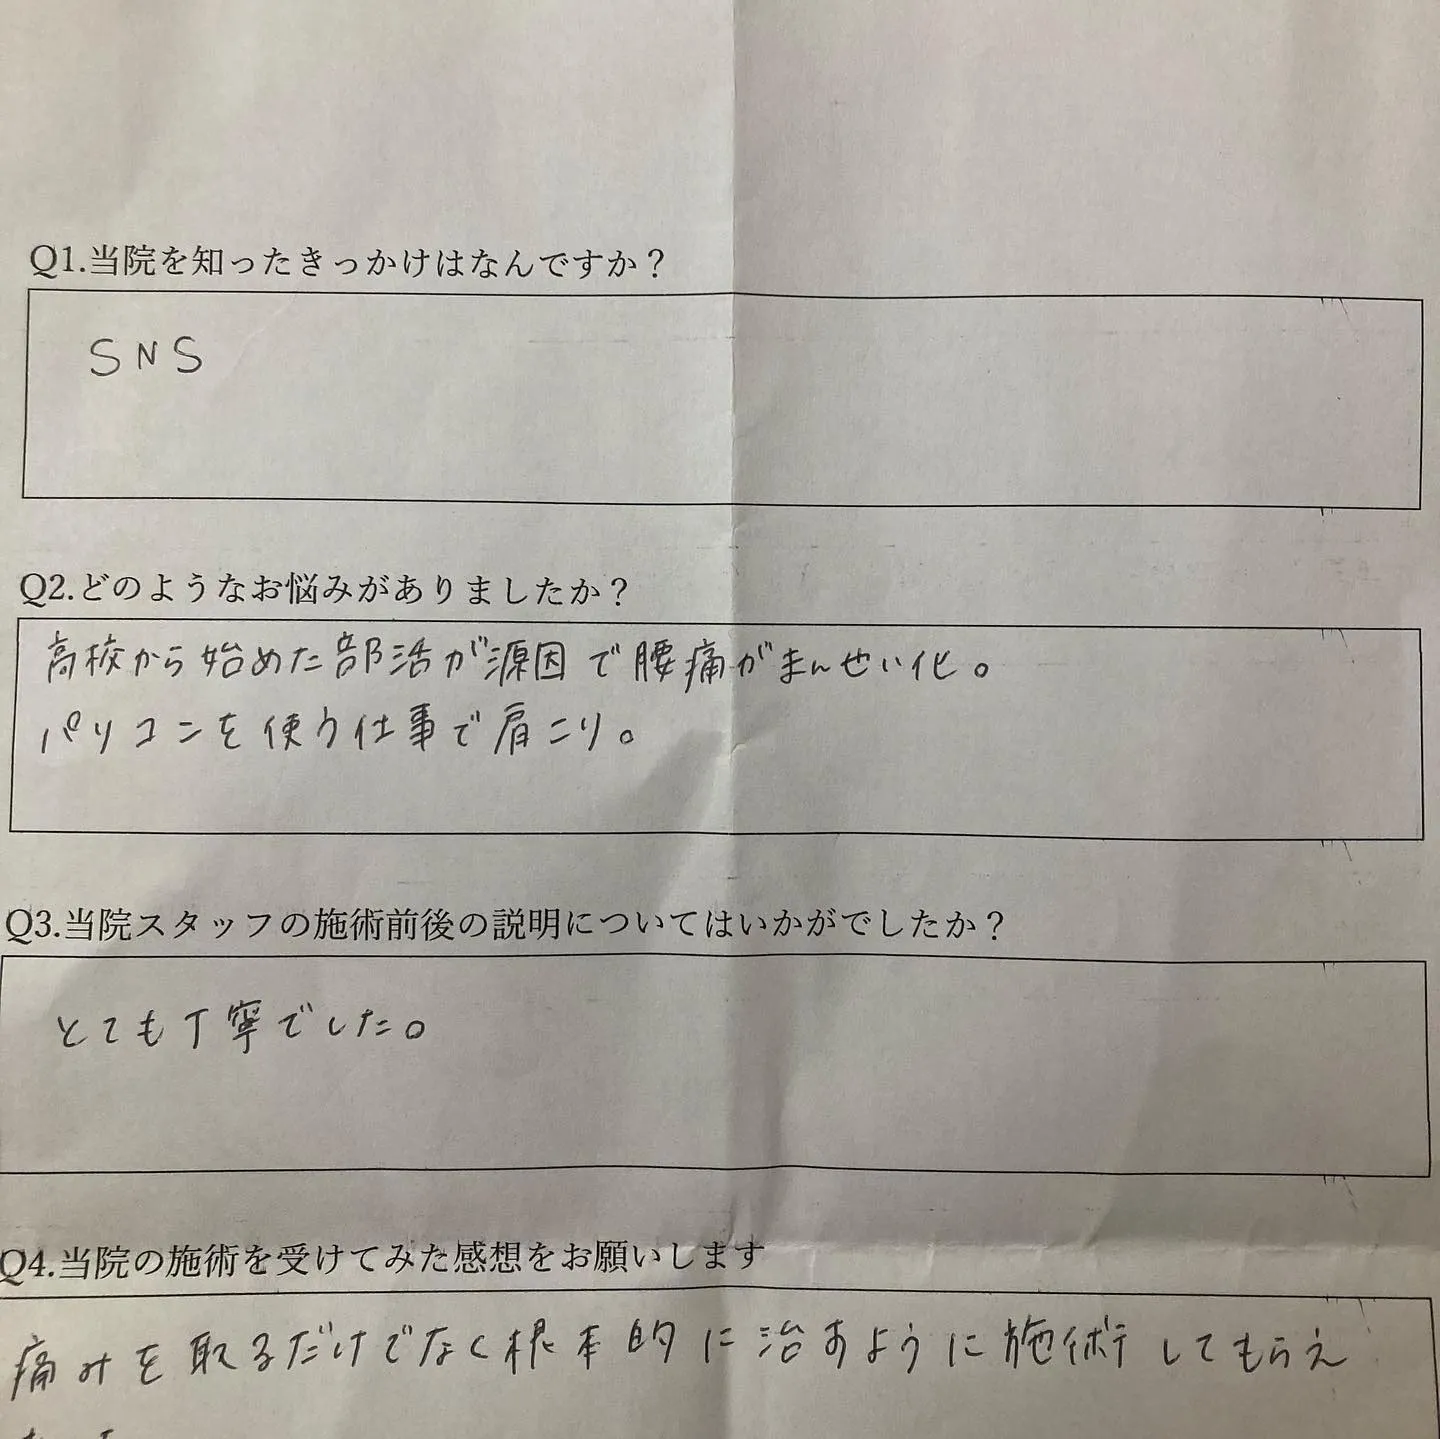 Q1.当院を知ったきっかけはなんですか？
SNS
Q2.どのようなお悩みがありましたか？
高校から始めた部活が源因で腰痛がまんせい化。
パソコンを使う仕事で肩こり。
Q3.当院スタッフの施術前後の説明についてはいかがでしたか？
とても丁寧でした。
Q4.当院の施術を受けてみた感想をお願いします
痛みを取るだけでなく根本的に治すように施術してもらえ